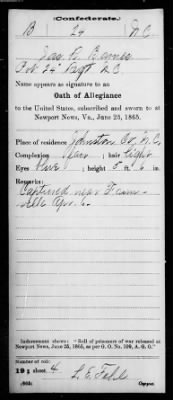 (Confederate.)
B 24 N C
Jas. R. Barnes
Pvt 24" Regt N.C.
Name appears as signature to an
Oath of Allegiance
to the United States, subscribed and sworn to at
Newport News, Va., June 25, 1865.
Place of residence Johnston Co, N.C.
Complexion fair; hair light
Eyes blue; height 5 ft. 6 in.
Remarks:
Captured near Farm-
ville Apr. 6.
Indorsement shows: "Roll of prisoners of war released at
Newport News, June 25, 1865, as per G. O. No. 109, A. G. O."
Number of roll:
19; sheet 4
Copyist.